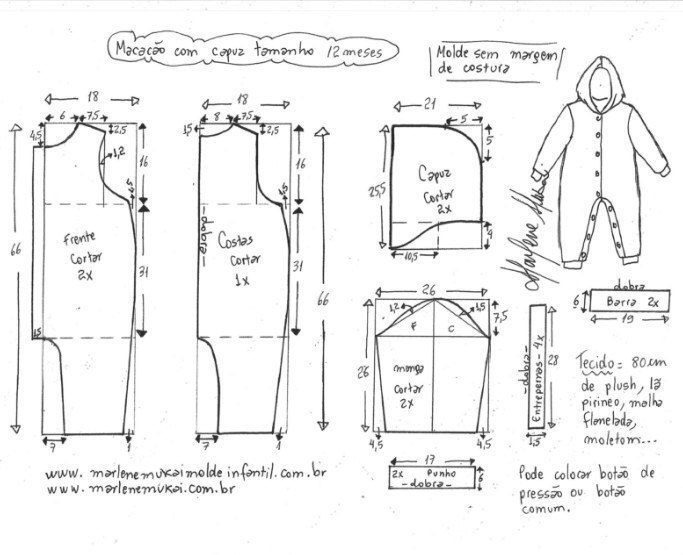 Macacão com capuz tamanho 12 meses
Molde sem margem
de costura
18
6
7,5
4,5
2,5
1,2
16
66
Frente
Cortar
2x
31
1,5
7
1
18
8
7,5
1,5
2,5
16
-dobra-
Costas
Cortar
1x
31
66
7
1
21
5
5
Capuz
Cortar
2x
25,5
10,5
4
26
1,2
1,5
7,5
F
C
26
manga
cortar
2x
4,5
4,5
17
2x Punho
-dobra-
6
-dobra-
Entrepernas- 4x
28
1,5
dobra
6
Barra 2x
19
Tecido = 80cm
de plush, lã
pirineo, malha
flanelada,
moletom...
Pode colocar botão de
pressão ou botão
comum.
www.marlenemukaimoldeinfantil.com.br
www.marlenemukai.com.br